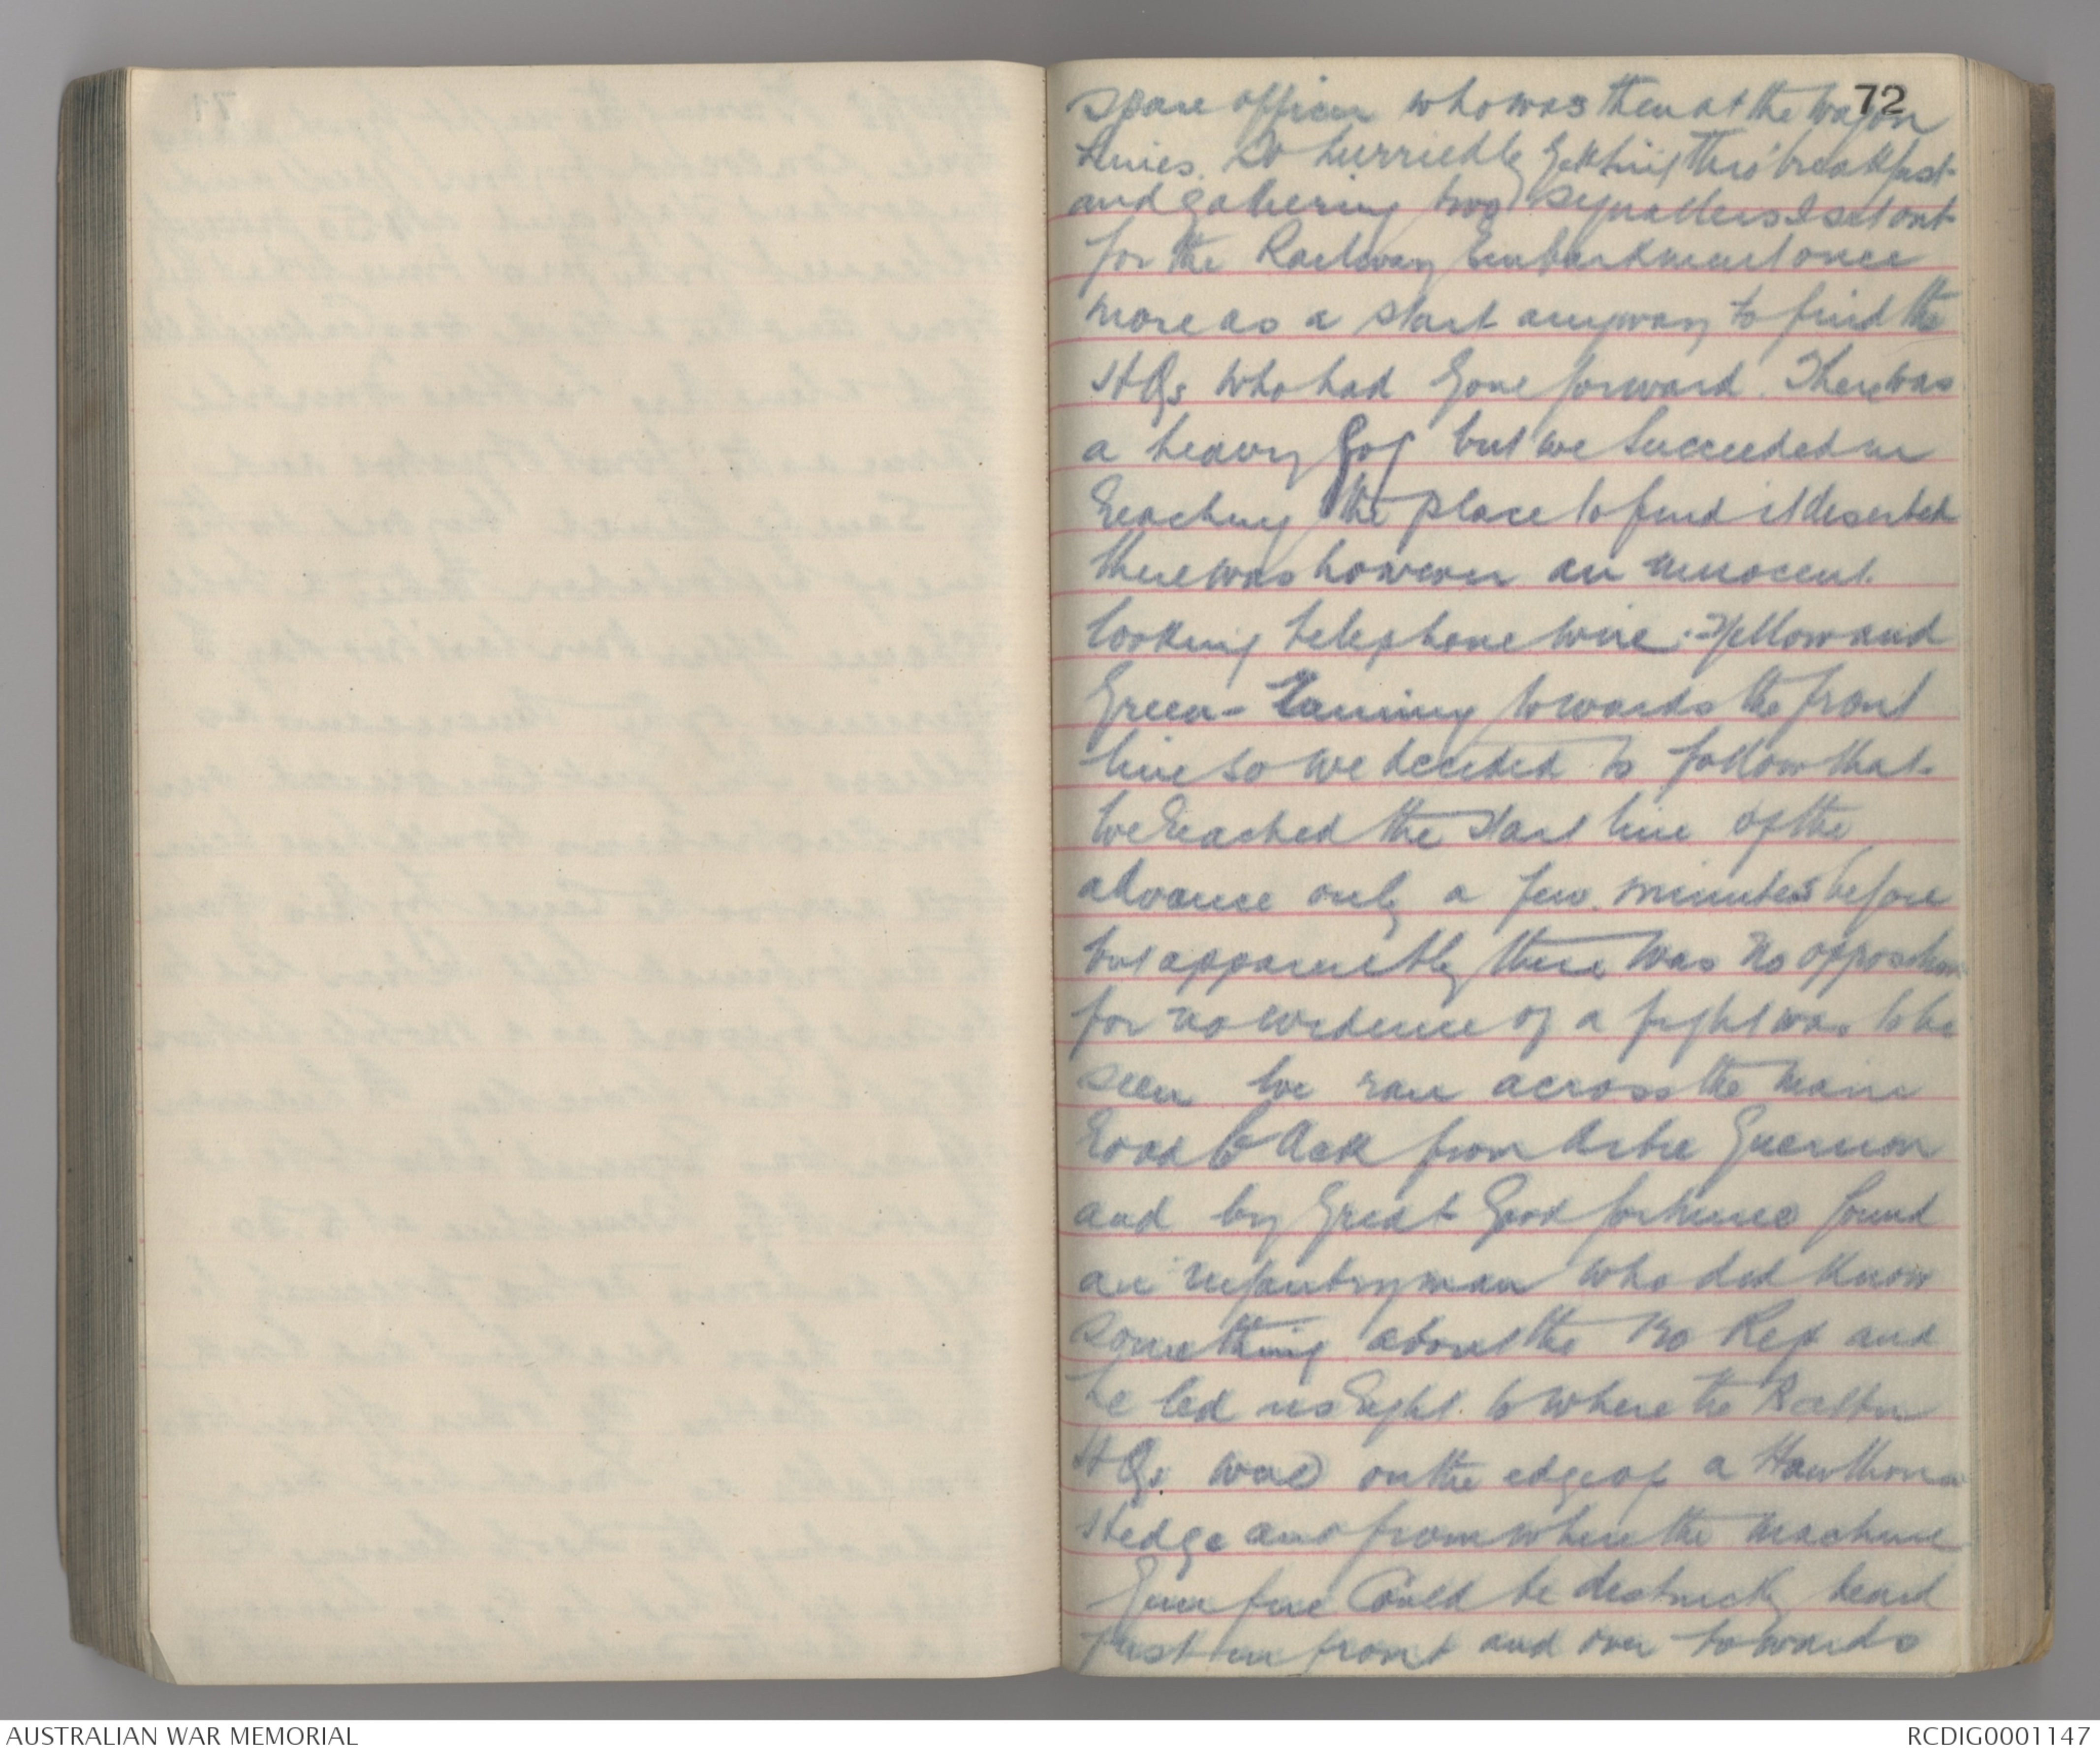 72
spare officer who was then at the wagon
lines. So hurriedly getting this breakfast
and gathering two signallers I set out
for the Railway Embankment once
more as a start anyway to find the
HQs who had gone forward. There was
a heavy fog but we succeeded in
reaching the place to find it deserted
there was however an innocent
looking telephone wire :- yellow and
green - running towards the front
line so we decided to follow that.
We reached the start line of the
advance only a few minutes before
but apparently there was no opposition
for no evidence of a fight was to be
seen we ran across the main
road back from Arbre Guernon
and by great good fortune found
an infantryman who did know
something about the Rep and
he led us right to where the Battn
HQs was on the edge of a Hawthorne
Hedge and from where the machine
gun fire could be distinctly heard
just in front and over towards
AUSTRALIAN WAR MEMORIAL
RCDIG0001147